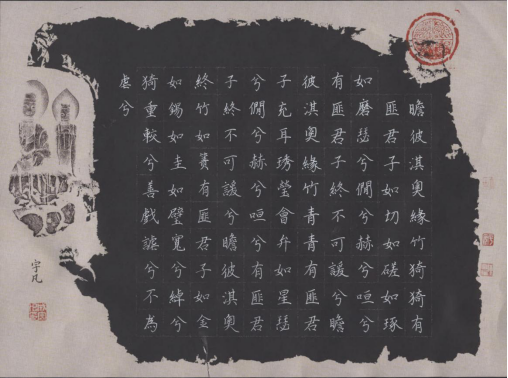 瞻彼淇奧緣竹猗猗有
匪君子如切如磋如琢
如磨瑟兮僩兮赫兮咺兮
有匪君子終不可諼兮瞻
彼淇奧緣竹青青有匪君
子充耳琇瑩會弁如星瑟
兮僩兮赫兮咺兮有匪君
子終不可諼兮瞻彼淇奧
終竹如簀有匪君子如金
如錫如圭如璧寬兮綽兮
猗重較兮善戲謔兮不為
虐兮
宇凡